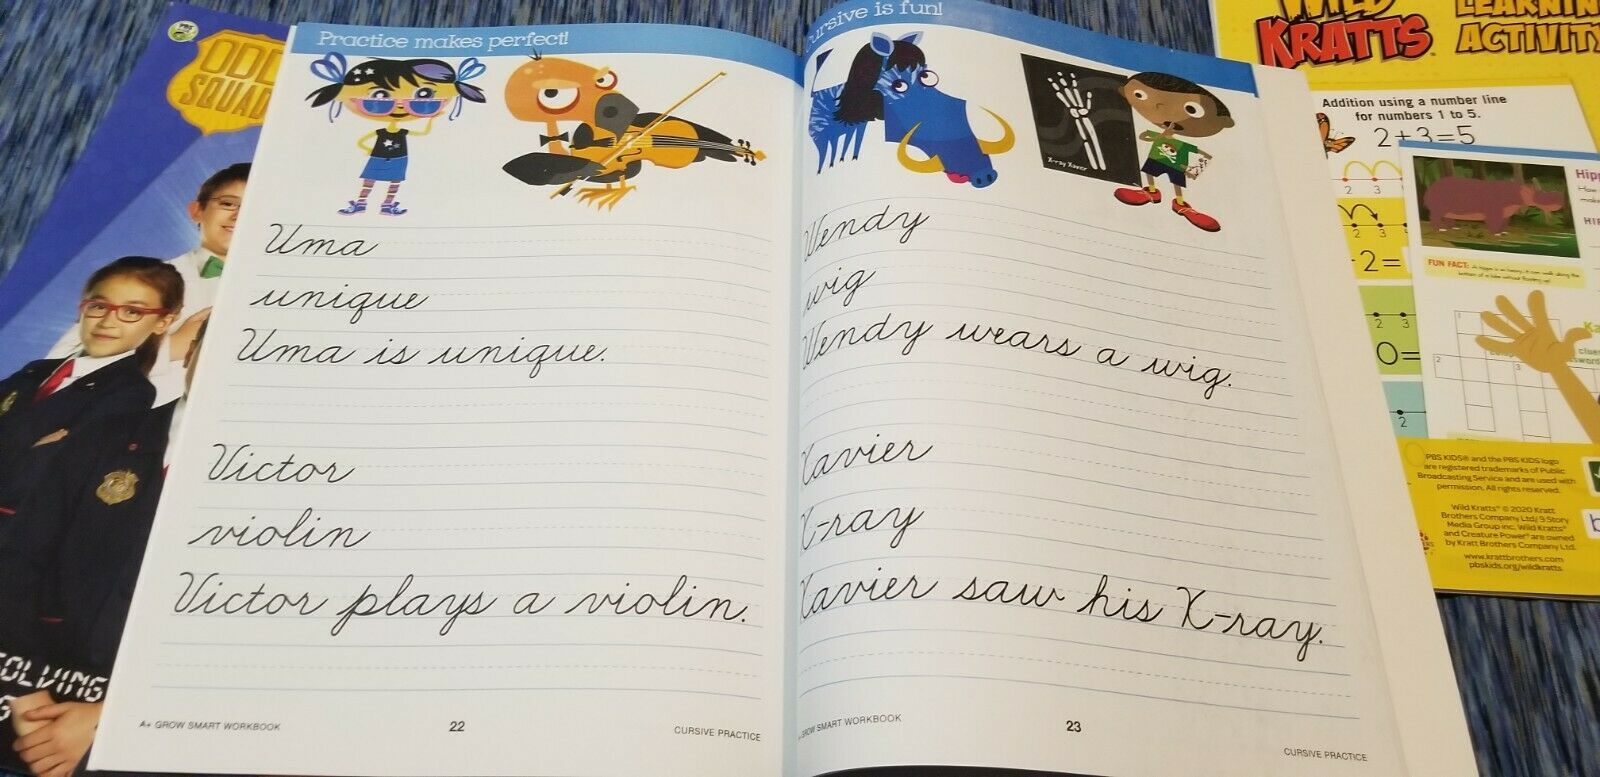 PBS
ODD
SQUAD
Practice makes perfect!
Uma
unique
Uma is unique.
Victor
violin
Victor plays a violin.
A+ GROW SMART WORKBOOK
22
CURSIVE PRACTICE
Cursive is fun!
X-ray Xaver
Wendy
wig
Wendy wears a wig.
Xavier
X-ray
Xavier saw his X-ray.
GROW SMART WORKBOOK
23
CURSIVE PRACTICE
OLVING
WILD
KRATTS
LEARNIN
ACTIVITY
Addition using a number line
for numbers 1 to 5.
2+3=5
2 3
2 3
2=
2 3
0=
2
Hip
How
HI
FUN FACT:
1
2
3
Ka
clue
sword
PBS KIDS® and the PBS KIDS logo
are registered trademarks of Public
Broadcasting Service and are used with
permission. All rights reserved.
Wild Kratts® © 2020 Kratt
Brothers Company Ltd/ 9 Story
Media Group inc. Wild Kratts®
and Creature Power® are owned
by Kratt Brothers Company Ltd.
www.krattbrothers.com
pbskids.org/wildkratts